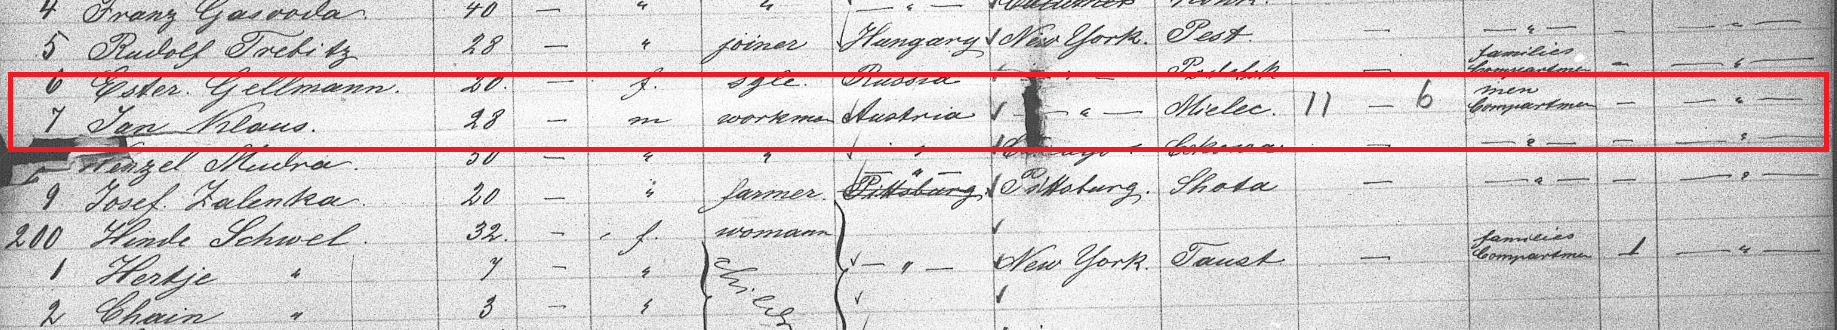 4 Franz Gasvoda. 40 — " " — " —
5 Rudolf Trebitz 28 — " joiner Hungary New York. Pest. — — " — - — " —
6 Ester. Gellmann. 20. — f. sgle. Russia — families Compartmen - — " —
7 Jan Klaus. 28 — m workman Austria — " — Mielec. 11 — 6 men Compartmen — — " —
Wenzel Mudra. 30 — " " — — " — - — " —
9 Josef Zalenka. 20 — " farmer. Pittsburg — " — Pittsburg. Shota — — " — - — " —
200 Hinde Schwel. 32. — f. womann
1 Hertje " 7 — " — " — New York. Taust. — families Compartmen 1 — " —
2 Chain " 3 — "